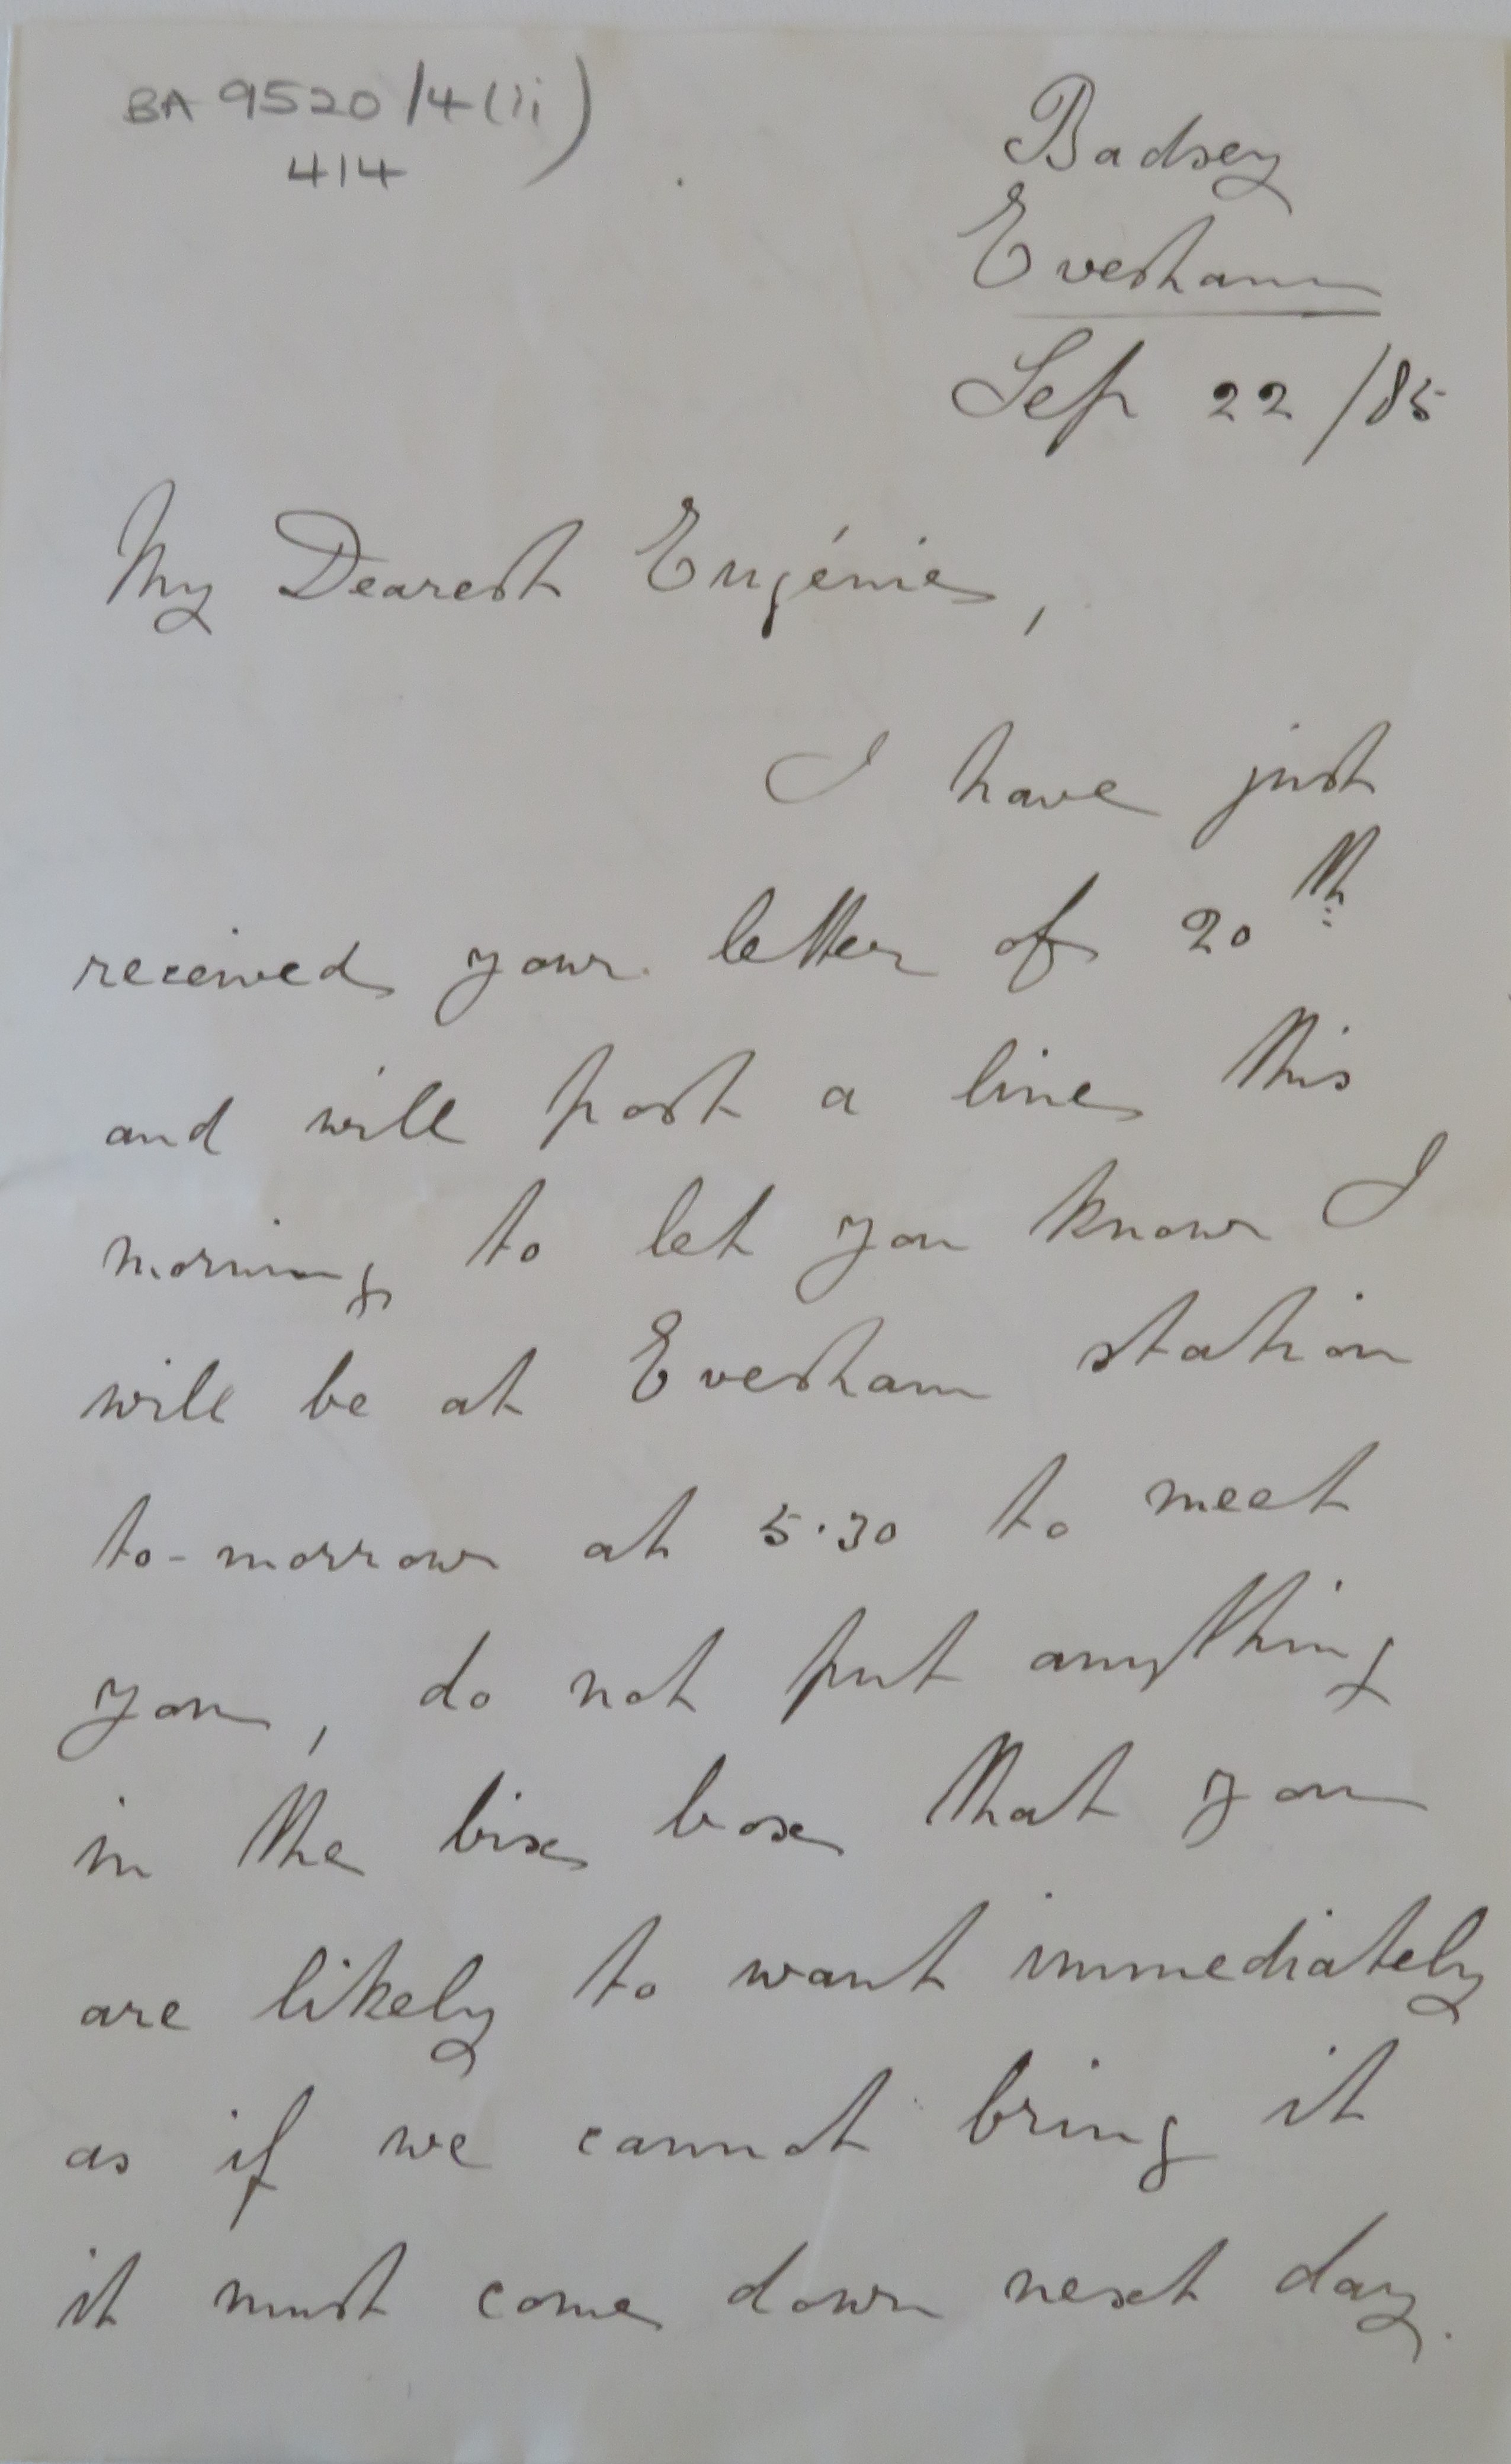 BA 9520/4(ii)
414
Badsey
Evesham
Sep 22/85
My Dearest Eugénie,
I have just
received your letter of 20th
and will post a line this
morning to let you know I
will be at Evesham station
to-morrow at 5.30 to meet
you, do not put anything
in the bix box that you
are likely to want immediately
as if we cannot bring it
it must come down next day.